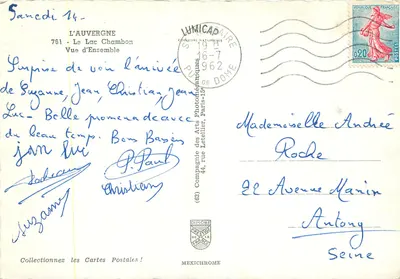 Samedi 14 -
L'AUVERGNE
751 - Le Lac Chambon
Vue d'Ensemble
Surprise de voir l'arrivée
de Suzanne, Jean, Christian, Jean
Luc - Belle promenade avec
du beau temps. Bons Baisers
Jean Luc
P. Paul
Christian
Suzanne
LUMICAP
1962
PUY DE DOME
0,20
(63) Compagnie des Arts Photomécaniques
44, rue Letellier, Paris-15e
Mademoiselle Andrée
Roche
22 Avenue Marin
Antony
Seine
Collectionnez les Cartes Postales !
MEXICHROME